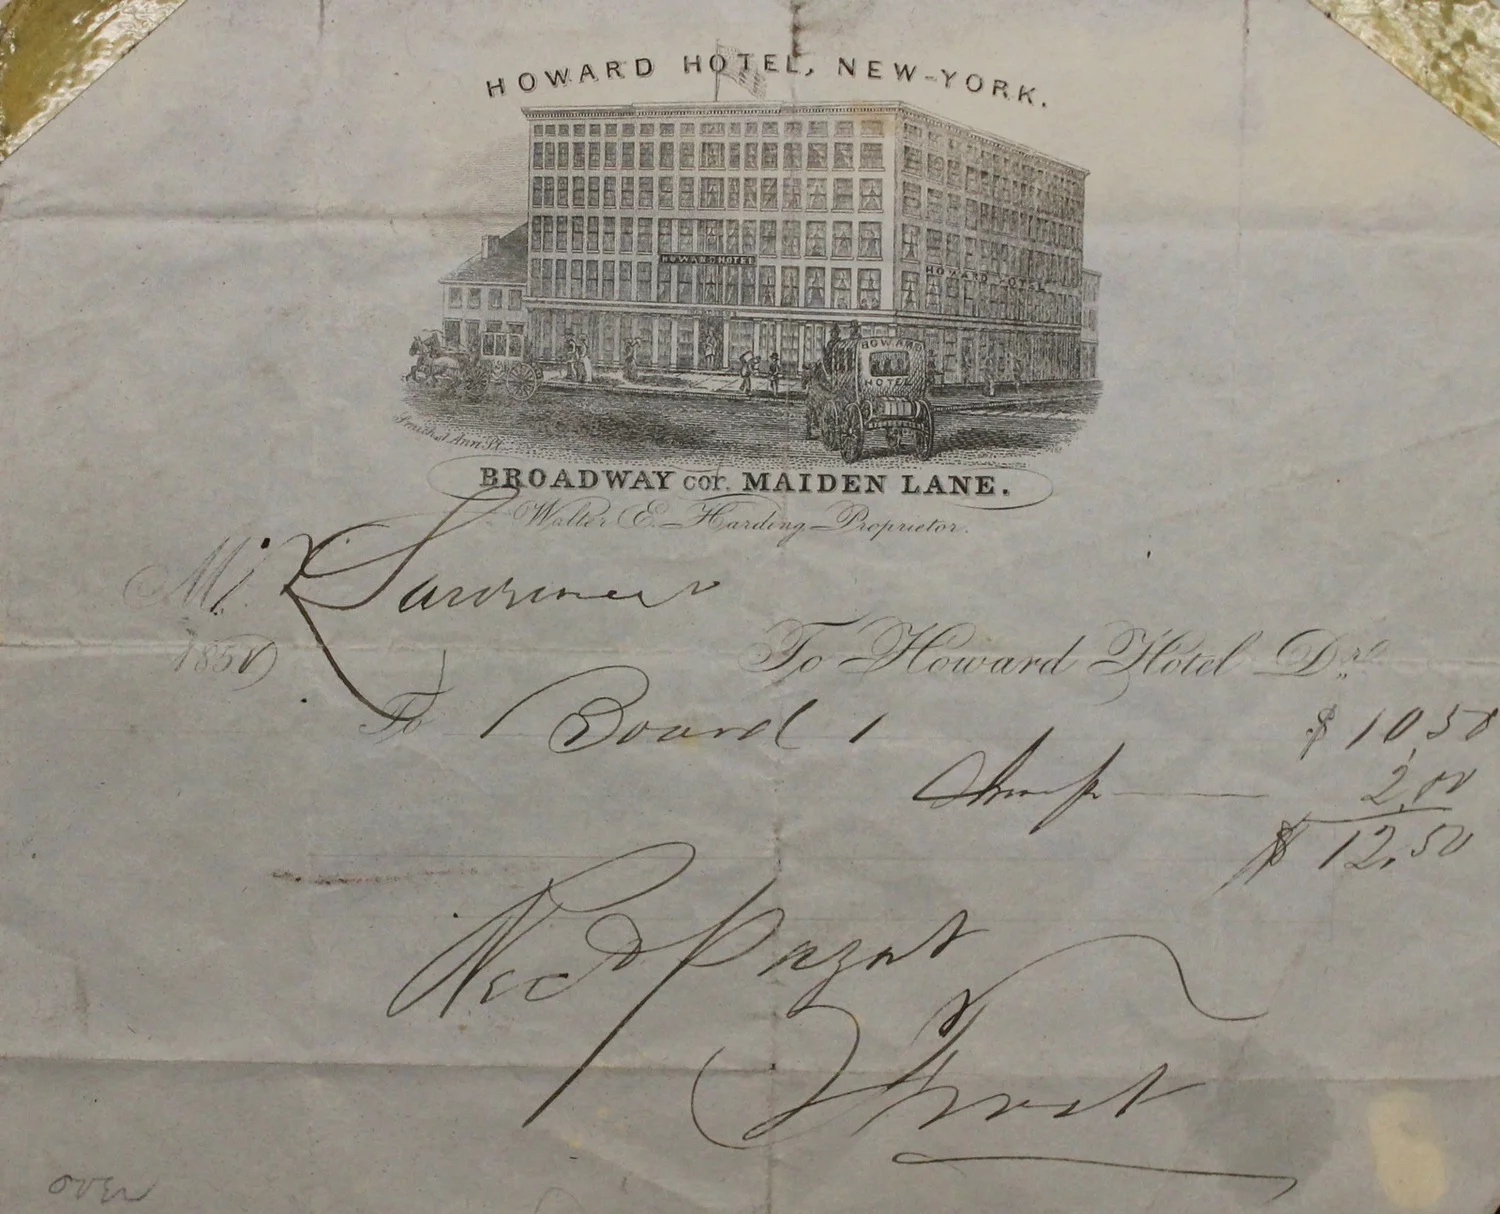 HOWARD HOTEL, NEW-YORK.
HOWARD HOTEL
HOWARD HOTEL
HOWARD
HOTEL
Ann St.
BROADWAY cor. MAIDEN LANE.
Walter E. Harding Proprietor.
M
185
To Howard Hotel Dr.
To Board 1 $10,50
2,00
$12,50
Recd Payment
over